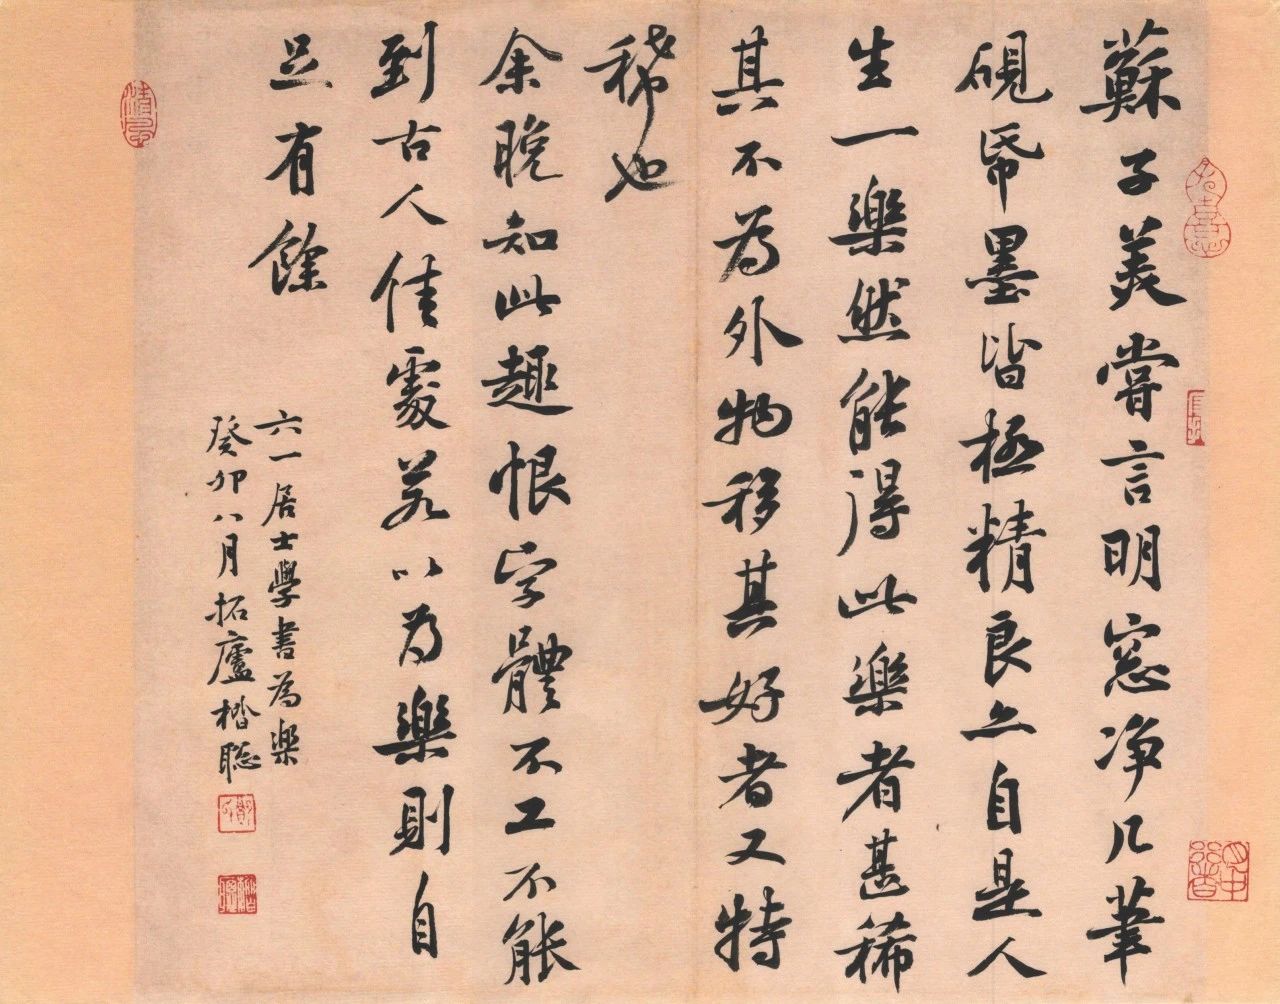 蘇子美嘗言明窓净几筆
硯帋墨皆極精良亦自是人
生一樂然能得此樂者甚稀
其不為外物移其好者又特
稀也
余晚知此趣恨字體不工不能
到古人佳處若以為樂則自
足有餘
六一居士學書為樂
癸卯八月拓廬楷聡